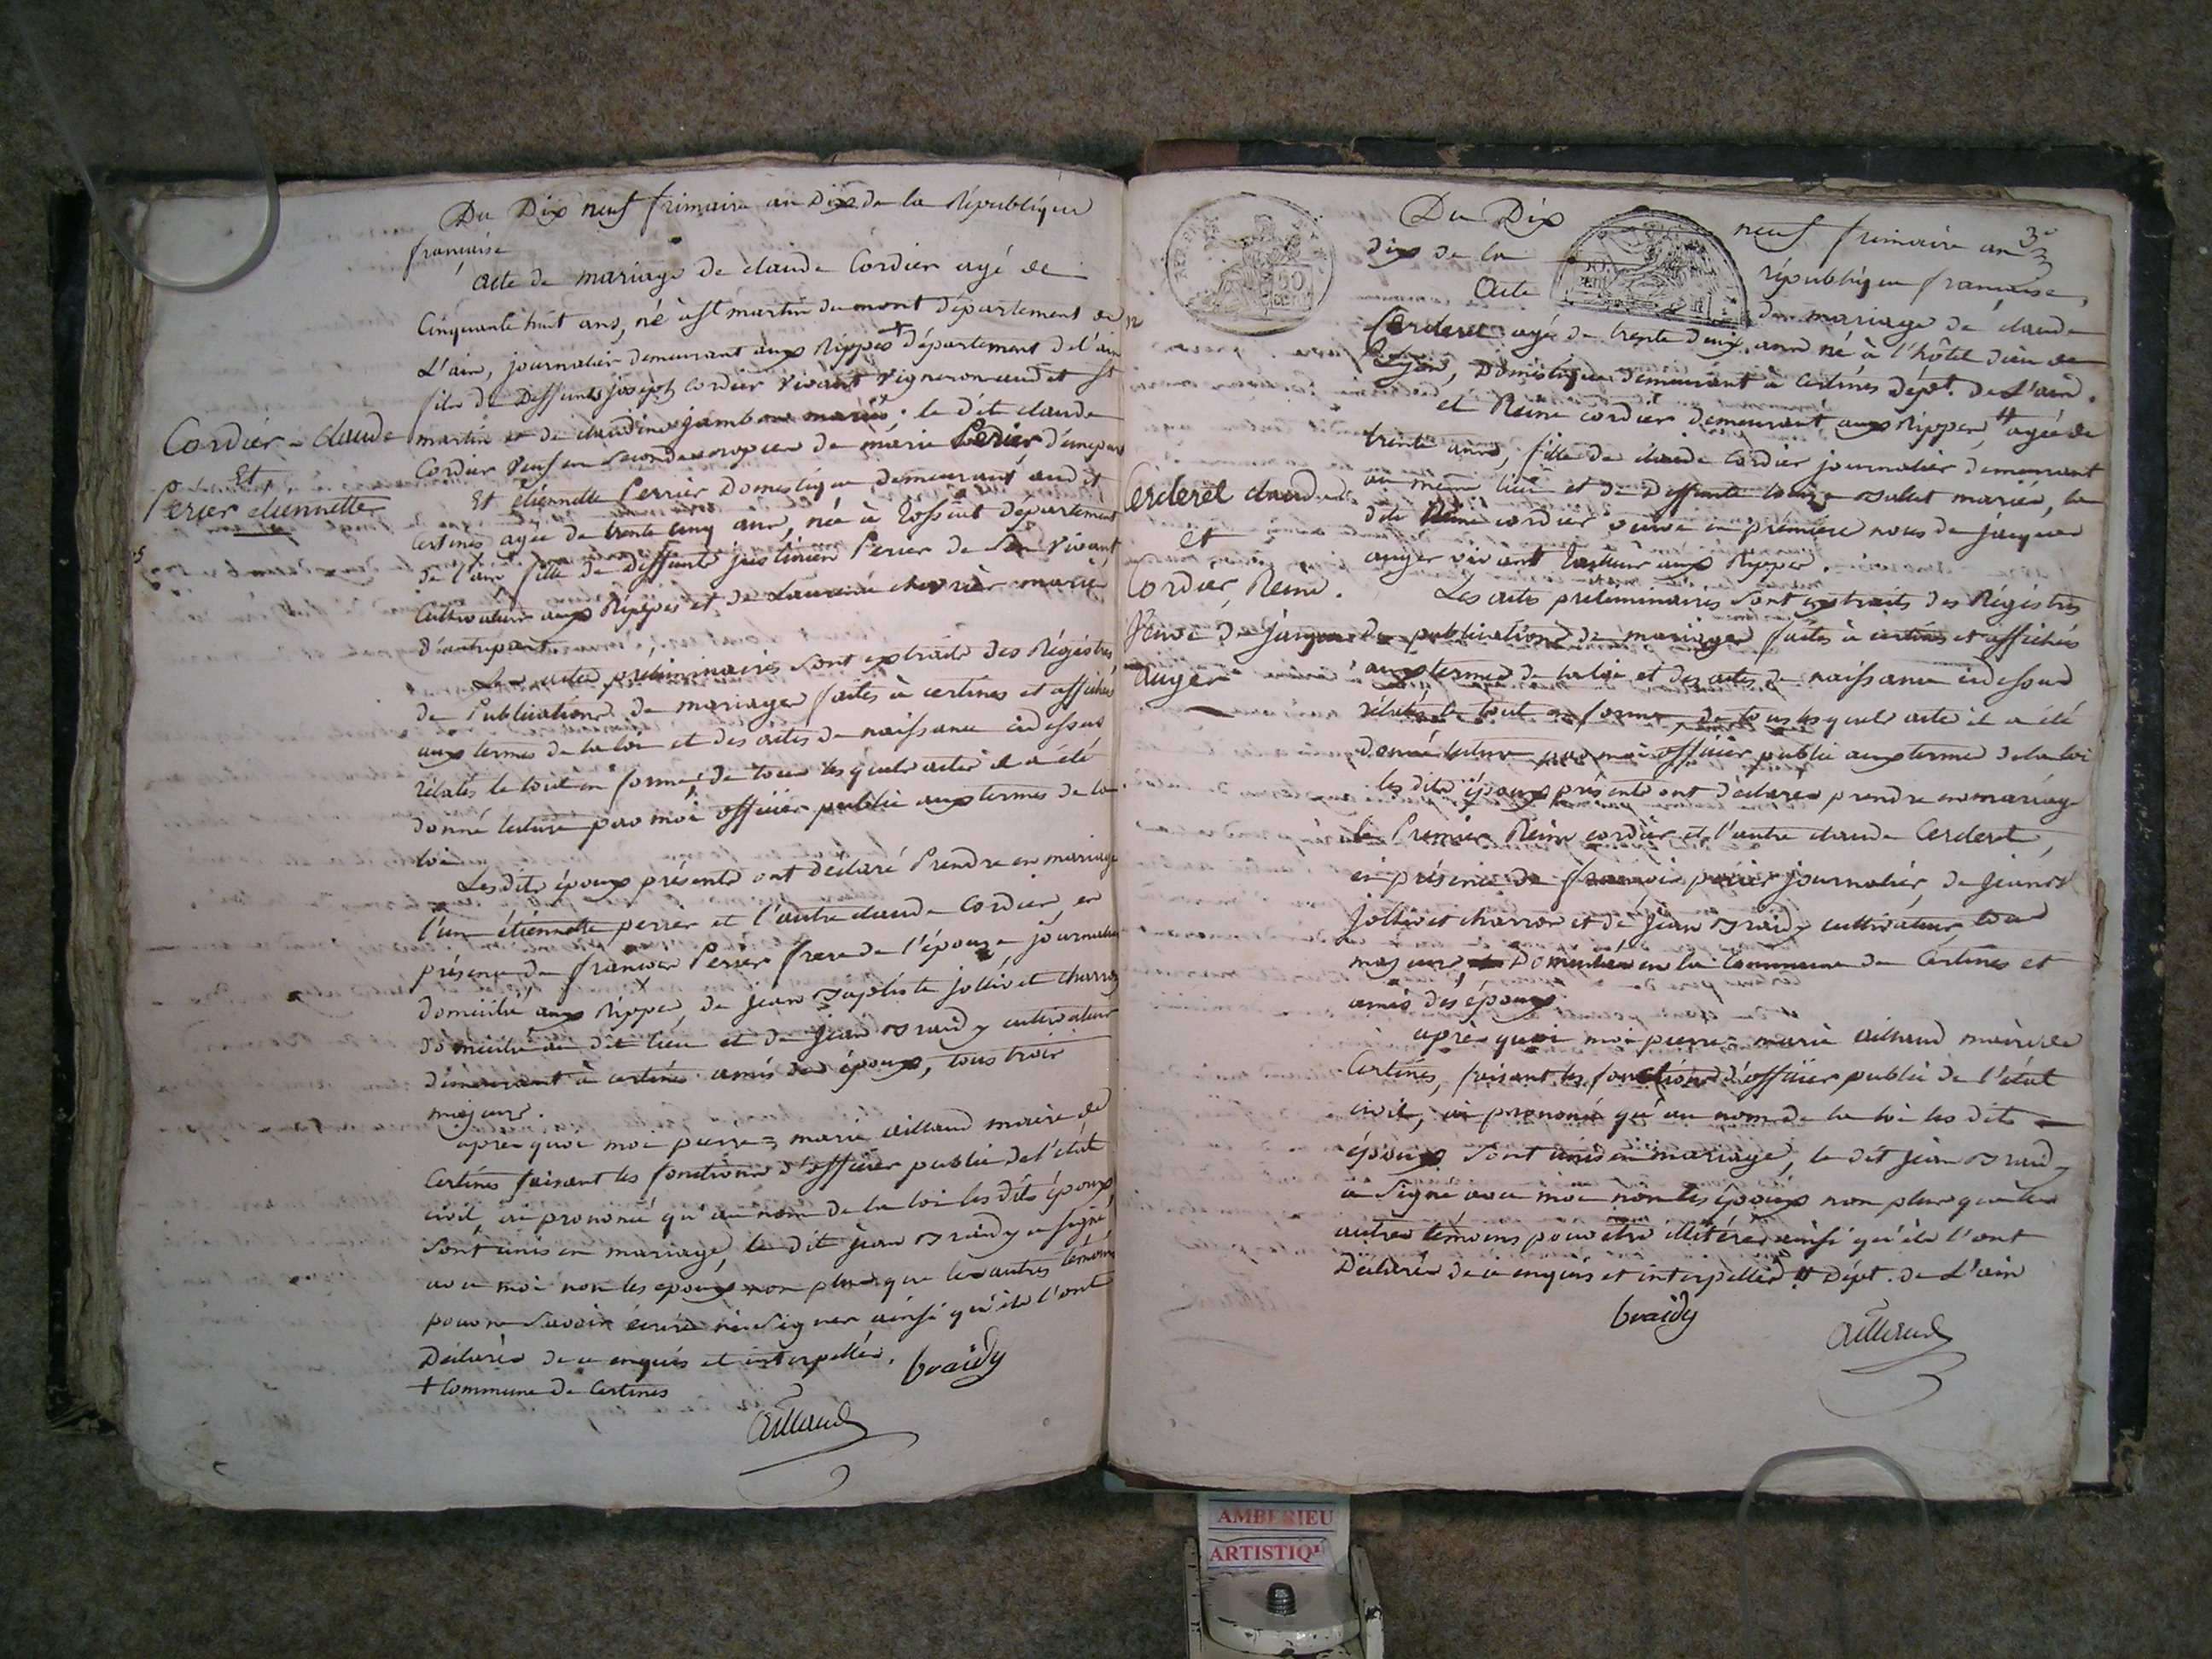 Du Dix neuf frimaire an Dix de la République
française
acte de mariage de claude Cordier agé de
Cinquante huit ans, né à st martin du mont département de
L'ain, journalier demeurant aux Rippes + département de l'ain
fils de Deffunts joseph cordier vivant vigneron audit st
martin et de claudine jambon mariés; le dit claude
Cordier veuf en secondes noces de marie Perier d'une part
Et étiennette Perrier Domestique demeurant audit
Certines agée de trente cinq ans, née à Tossiat département
de l'ain fille de deffunt justinien Perier de son vivant
Cultivateur aux Rippes et de Laurence chevrier mariés
d'autre part.
Les actes préliminaires sont extraits des Régistres
de Publications de mariages faites à certines et affichés
aux termes de la loi et des actes de naissance cidessus
rélatés le tout en forme; de tous lesquels actes il a été
donné lecture par moi officier public aux termes de la
loi
Lesdits époux présents ont déclaré Prendre en mariage
l'un étiennette perrier et l'autre claude Cordier, en
présence de françois Perier frere de l'épouse journalier
domicilié aux Rippes, de jean Baptiste jollivet charron
domicilié au dit lieu et de jean Braidy cultivateur
demeurant à certines amis des époux, tous trois
majeurs.
après quoi moi pierre = marie aillaud maire de
Certines faisant les fonctions d'officier public de l'état
civil, ai prononcé qu'au nom de la loi les dits époux
sont unis en mariage, le dit jean Braidy a signé
avec moi non les epoux non plus que les autres témoins
pour ne savoir écrire ni signer ainsi qu'ils l'ont
Déclarés de ce enquis et interpellés.
+ Commune de Certines
braidy
aillaud
Cordier = claude
Et
Périer étiennette
Du Dix neuf frimaire an 3e
dix de la république française,
Acte de mariage de claude
Cerderet agé de trente deux ans né à l'hôtel dieu de
Lyon, Domestique demeurant à certines dépt. de L'ain.
et Reine cordier demeurant aux Rippes, # agée de
trente ans, fille de claude Cordier journalier demeurant
au même lieu et de Deffunte mariés, la
dite Reine cordier veuve en première noces de jacques
auger vivant aux Rippes.
Les actes preliminaires sont extraits des Régistres
de publications de mariages faites à certines et affichés
aux termes de la loi et des actes de naissance cidessus
rélatés le tout en forme, de tous lesquels actes il a été
donné lecture par moi officier public aux termes de la loi
les dits époux présents ont déclarés prendre en mariage
le Premier Reine cordier et l'autre claude Cerderet,
en présence de françois périer journalier, de jean
jollivet charron et de jean Braidy cultivateur tous
majeurs, Domiciliés en la Commune de Certines et
amis des époux.
après quoi moi pierre = marie aillaud maire de
Certines, faisant les fonctions d'officier public de l'état
civil, ai prononcé qu'au nom de la loi les dits
époux sont unis en mariage, le dit jean Braidy
a signé avec moi non les époux non plus que les
autres témoins pour être illitérés ainsi qu'ils l'ont
Déclarés de ce enquis et interpellés # Dépt. de L'ain
braidy
aillaud
Cerderet claude
et
Cordier, Reine.
Veuve de jacques
Auger
AMBERIEU
ARTISTIQ